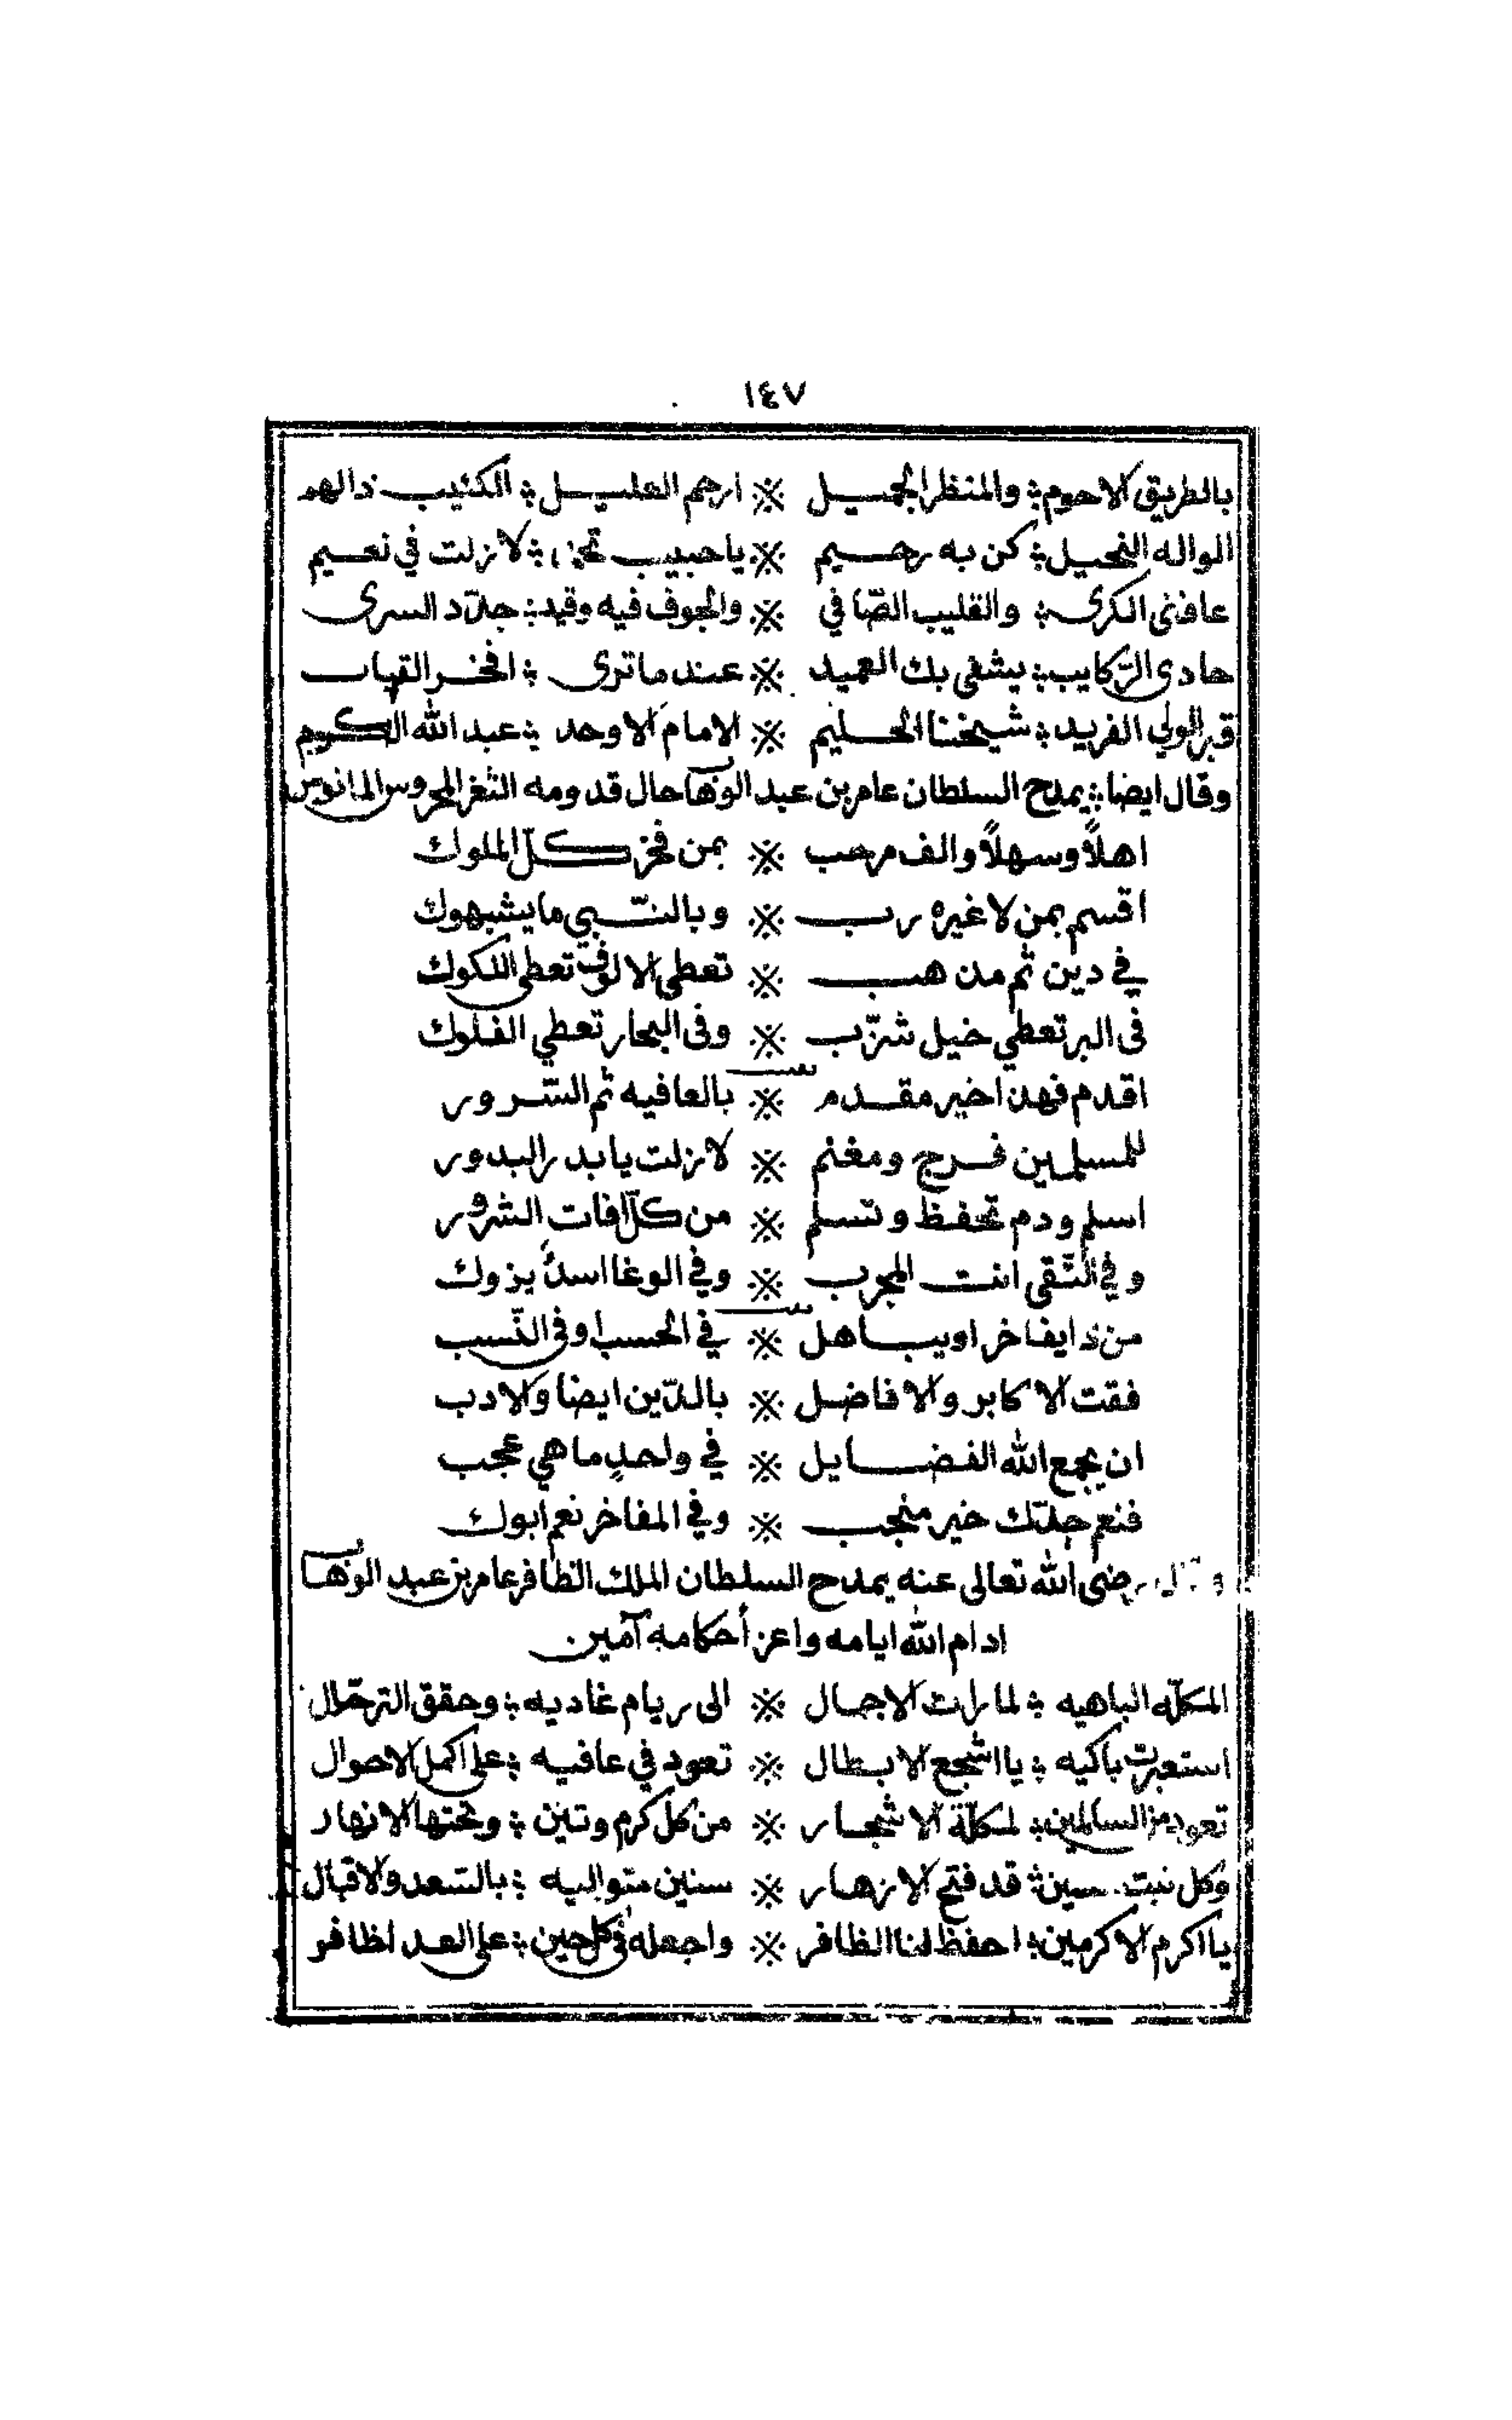 ١٤٧
بالطريق الاحوم ؛ والمنظر الجميل ※ ارحم العليل ؛ الكئيب ذا لهو
الواله النحيل ؛ كن به رحيم ※ يا حبيب ؛ لا زلت في نعيم
عافنى الكرى ؛ والقليب الصّافي ※ والجوف فيه وقيد ؛ جدّد السرى
حادى الرّكايب ؛ يشفى بك العميد ※ عند ما ترى ؛ افخر القباب
قبر الولي الفريد ؛ شيخنا الحليم ※ الامام الاوحد ؛ عبد الله الكريم
وقال ايضا ؛ يمدح السلطان عامر بن عبد الوهاب حال قدومه الثغر المحروس المانوس
اهلاً وسهلاً والف مرحب ※ بمن فخر كلّ الملوك
اقسم بمن لا غيره رب ※ وبالنّبي ما يشبهوك
في دين ثم مذهب ※ تعطى الالوف تعطى اللكوك
فى البر تعطي خيل شزّب ※ وفى البحار تعطي الفلوك
بيت
اقدم فهذا خير مقدم ※ بالعافيه ثم السّرور
للمسلمين فرج ومغنم ※ لا زلت يا بدر البدور
اسلم ودم تحفظ وتسلم ※ من كلّ افات الشرور
وفي التّقى انت المجرب ※ وفي الوغا اسدٌ يزوك
بيت
من ذا يفاخر او يباهل ※ في الحسب او فى النّسب
فقت الاكابر والافاضل ※ بالدّين ايضا والادب
ان يجمع الله الفضايل ※ في واحدٍ ما هي عجب
فنعم جدّك خير منجب ※ وفي المفاخر نعم ابوك
وقال رضى الله تعالى عنه يمدح السلطان الملك الظافر عامر بن عبد الوهاب
ادام الله ايامه واعز أحكامه آمين
المكلّه الباهيه ؛ لما رات الاجمال ※ الى ريام غاديه ؛ وحقق الترحّال
استعبرت باكيه ؛ يا اشجع الابطال ※ تعود في عافيه ؛ على اكمل الاحوال
تعود من السالمين ؛ لمكلّة الاشجار ※ من كل كرم وتين ؛ وتحتها الانهار
وكل نبت سين ؛ قد فتح الازهار ※ سنين متواليه ؛ بالسّعد والاقبال
يا اكرم الاكرمين ؛ احفظ لنا الظافر ※ واجعله فى كل حين ؛ على العدا ظافر